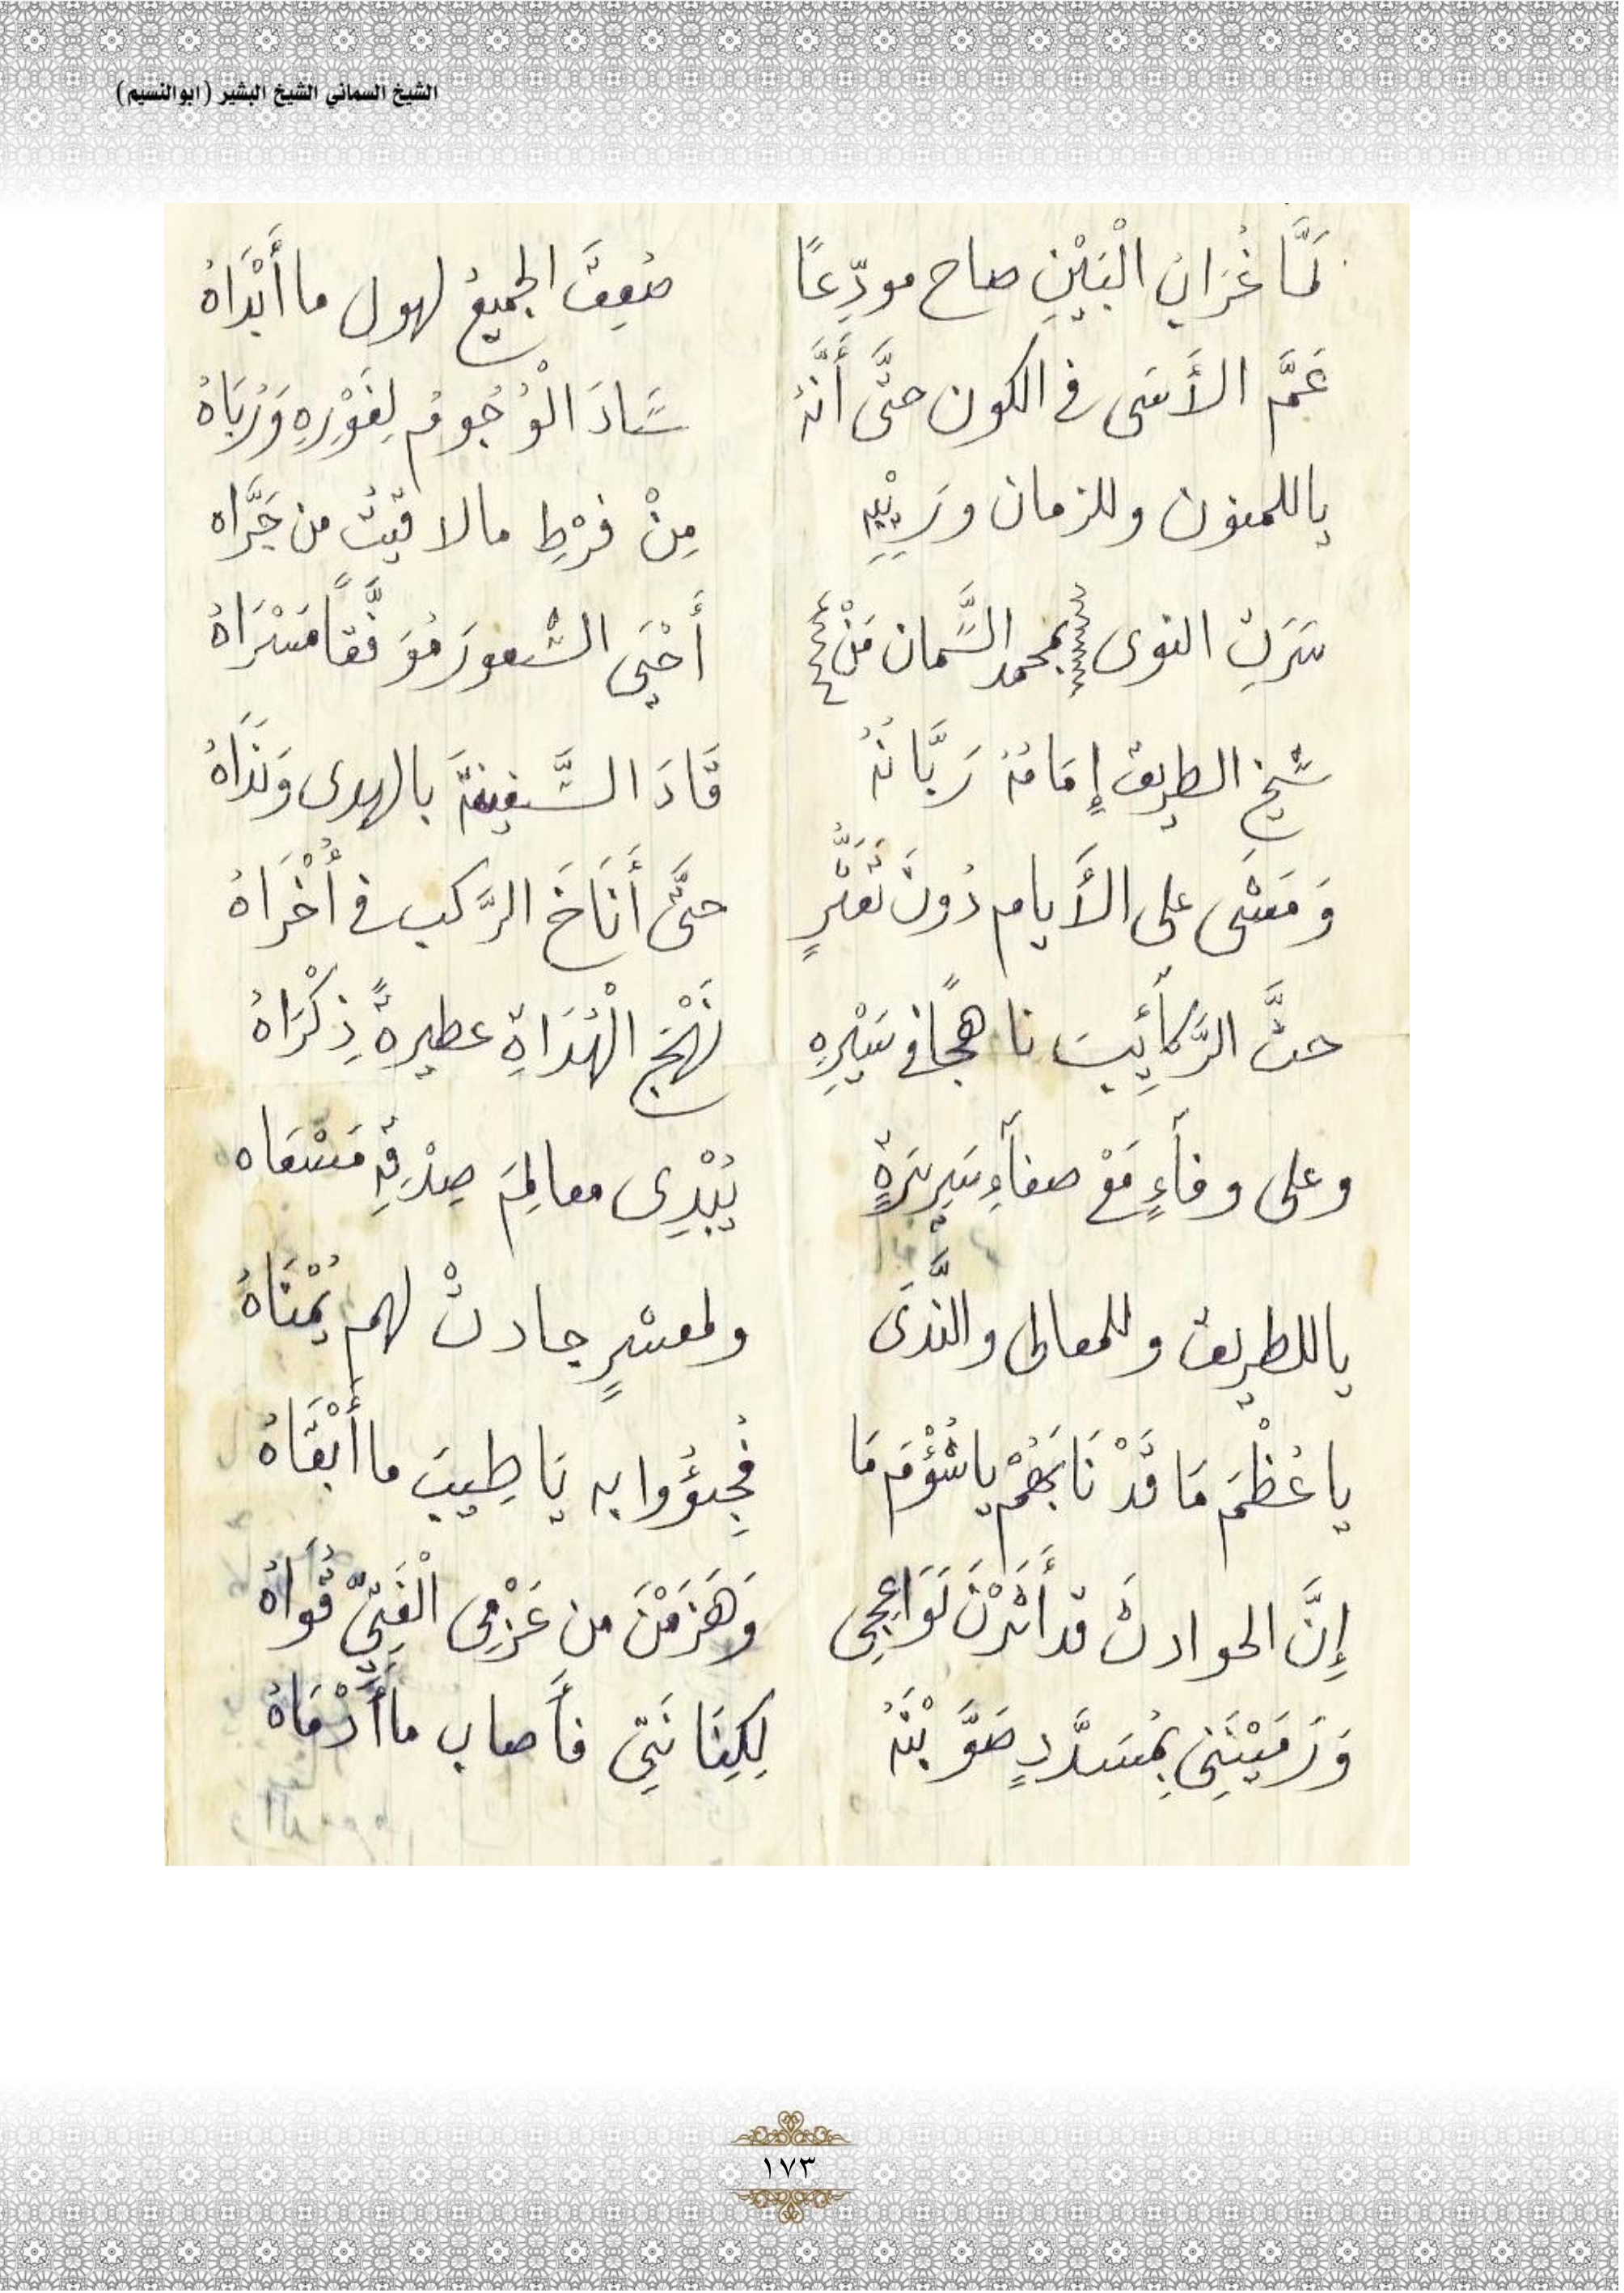 الشيخ السماني الشيخ البشير (ابوالنسيم)
لَمَّا غُرَابُ الْبَيْنِ صاح مودِّعًا صُعِقَ الجميعُ لهول ما أَبْدَاهُ
عَمَّ الأَسَى في الكون حتَّى أَنَّهُ سَادَ الْوُجُومُ لِغَوْرِهِ وَرُبَاهُ
ياللمنون وللزمان ورَيْبِهِ مِنْ فرْطِ مالاقيْتُ من جَرَّاه
سَرَتِ النوى بمحمد السَّمان مَنْ أَحْيَى الشعورَ مُوَفَّقاً مَسْرَاهُ
شيخ الطريق إِمَامُهُ رَبَّانُهُ قَادَ السَّفِينَةَ بالهدى وَنَدَاهُ
وَمَضَى على الأَيام دُونَ تَعَثُّرٍ حتَّى أَنَاخَ الرَّكب في أُخْرَاهُ
حثَّ الرَّكآئِبَ ناهجًا في سَيْرِهِ نَهْجَ الْهُدَاةِ عطيرةً ذِكْرَاهُ
وعلى وفآءٍ مَعْ صفآءِ سَرِيرَةٍ يُبْدِى معالِمَ صِدْقِهِ مَسْعَاه
ياللطريق وللمعالى والنَّدَى ولمعسْرٍ جادتْ لهم يُمْنَاهُ
ياعُظْمَ مَا قَدْ نَابَهُمْ ياشُؤْمَ مَا فُجِئؤُوا به يَاطِيبَ ما أَبْقَاهُ
إِنَّ الحوادث قد أَثَرْنَ لَوَاعِجِى وَهَزَمْنَ من عَزْمِى الْفَتِىِّ قُوَاهُ
وَرَمَيْنَنِى بِمُسَدَّدٍ صَوَّبْنَهُ لِكِنَانَتِى فأَصاب ما أَدْمَاهُ
١٧٣